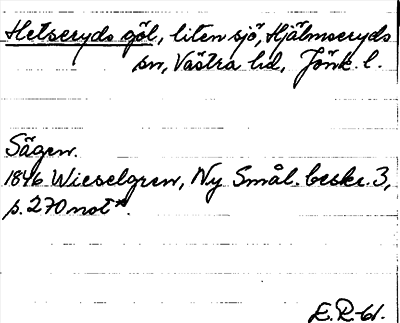 Hetseryds göl, liten sjö, Hjälmseryds
sn, Västra hd, Jönk. l.
Sägen.
1846 Wieselgren, Ny Smål. beskr. 3,
s. 270 not*.
E.R-61.